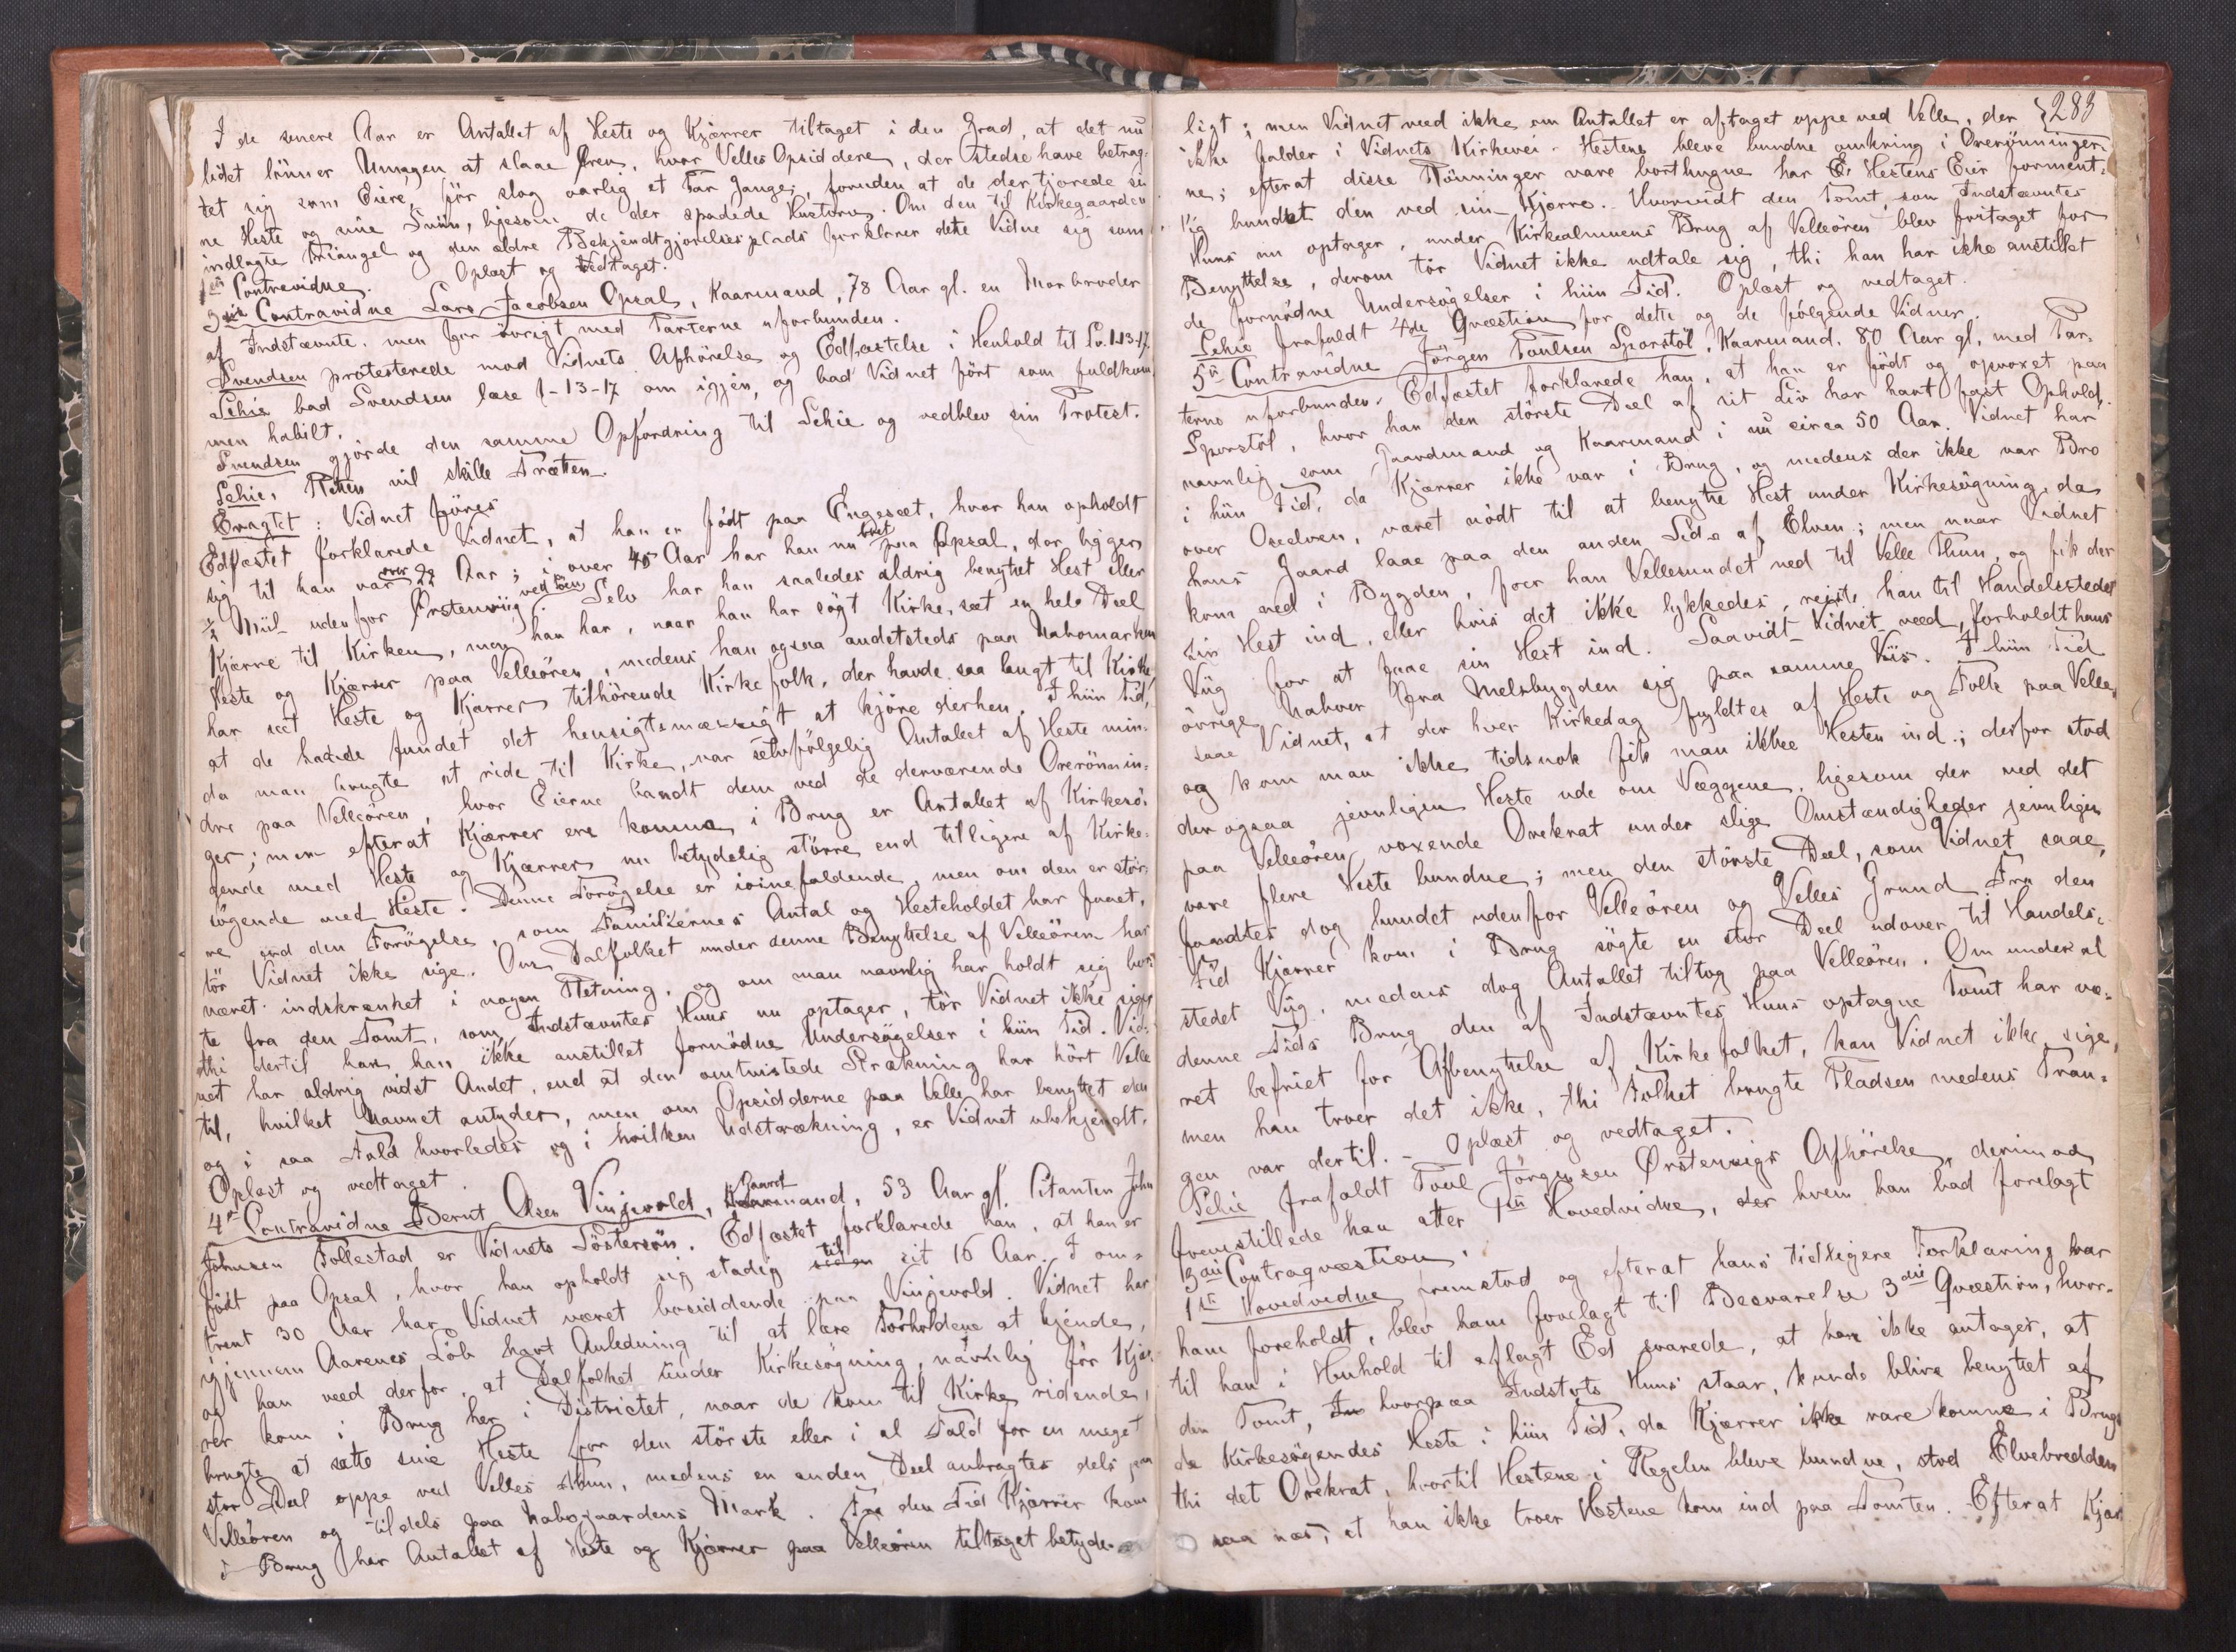 I de senere Aar er Antallet af Heste og Kjærrer tiltaget i den Grad, at det nu
lidet lønner Umagen at slaae Øren, hvor Velles Opsiddere, der stedse have betrag-
tet sig som Eiere, før slog aarlig et Par Gange, foruden at de der tjorede si
ne Heste og sine Sviin, ligesom de der spadede Kusturv. Om den til Kirkegaarden
indlagte Triangel og den ældre Bekjendtgjørelsesplads forklarer dette Vidne sig som
1ste Contravidne. Oplæst og vedtaget.
3die Contravidne Lars Jacobsen Opsal, Kaarmand, 78 Aar gl. en Morbroder
af Indstævnte, men for øvrigt med Parterne uforbunden.
Svendsen protesterede mod Vidnets Afhørelse og Edfæstelse i Henhold til Lv. 1-13-17.
Schie bad Svendsen læse 1-13-17 om igjen, og bad Vidnet ført som fuldkom
men habilt.
Svendsen gjorde den samme Opfordring til Schie og vedblev sin Protest.
Schie, Retten vil skille Trætten.
Eragtet: Vidnet føres
Edfæstet forklarede Vidnet, at han er født paa Engeset, hvor han opholdt
sig til han var over 22 Aar; i over 40 Aar har han nu boet paa Opsal, der ligger
½ Miil udenfor Ørstenviig ved Søen. Selv har han saaledes aldrig benyttet Hest eller
Kjærre til Kirken, men han har, naar han har søgt Kirke, seet en hele Deel
Heste og Kjærrer paa Velleøren, medens han ogsaa andetsteds paa Nabomarken
har seet Heste og Kjærrer tilhørende Kirkefolk, der havde saa langt til Kirke,
at de havde fundet det hensigtsmæssigt at kjøre derhen. I hiin Tid,
da man brugte at ride til Kirke, var selvfølgelig Antallet af Heste min-
dre paa Velleøren, hvor Eierne bandt dem ved de derværende Orerønnin-
ger; men efterat Kjærrer ere komne i Brug er Antallet af Kirkesø-
gende med Heste og Kjærrer nu betydelig større end tilligere af Kirke-
søgende med Heste. Denne Forøgelse er iøinefaldende, men om den er stør-
re end den Forøgelse, som Familiernes Antal og Hesteholdet har faaet,
tør Vidnet ikke sige. Om Dalfolket under denne Benyttelse af Velleøren har
været indskrænket i nogen Retning, og om man navnlig har holdt sig bor
te fra den Tomt, som Indstævntes Huus nu optager, tør Vidnet ikke sige
thi dertil har han ikke anstillet fornødne Undersøgelser i hiin Tid. Vid-
net har aldrig vidst Andet, end at den omtvistede Strækning har hørt Velle
til, hvilket Navnet antyder, men om Opsidderne paa Velle har benyttet den
og i saa Fald hvorledes og i hvilken Udstrækning, er Vidnet ubekjendt.
Oplæst og vedtaget.
4de Contravidne Bernt Olsen Vinjevold, Gaardmand, 53 Aar gl. Citanten John
Johnsen Follestad er Vidnets Søstersøn. Edfæstet forklarede han, at han er
født paa Opsal, hvor han opholdt sig stadig til sit 16 Aar. I om-
trent 30 Aar har Vidnet været bosiddende paa Vinjevold. Vidnet har
igjennem Aarenes Løb havt Anledning til at lære Forholdene at kjende,
og han veed derfor, at Dalfolket under Kirkesøgning, navnlig før Kjær
rer kom i Brug her i Districtet, naar de kom til Kirke ridende,
brugte at sætte sine Heste for den største eller i al Fald for en meget
stor Deel oppe ved Velles Thun, medens en anden Deel anbragtes dels paa
Velleøren og tildels paa Nabogaardens Mark. Fra den Tid Kjærrer kom
i Brug har Antallet af Heste og Kjærrer paa Velleøren tiltaget betyde-
283
ligt; men Vidnet veed ikke om Antallet er aftaget oppe ved Velle, der
ikke falder i Vidnets Kirkevei. Hestene bleve bundne omkring i Orerønninger-
ne; efterat disse Rønninger vare borthugne har Hestens Eier forment-
lig bundet den ved sin Kjærre. Hvorvidt den Tomt, som Indstævntes
Huus nu optager, under Kirkealmuens Brug af Velleøren blev fritaget for
Benyttelse, derom tør Vidnet ikke udtale sig, thi han har ikke anstillet
de fornødne Undersøgelser i hiin Tid. Oplæst og vedtaget.
Schie frafaldt 4de Qvæstion for dette og de følgende Vidner.
5te Contravidne Jørgen Poulsen Sporstøl, Kaarmand, 80 Aar gl, med Par-
terne uforbunden. Edfæstet forklarede han, at han er født og opvoxet paa
Sporstøl, hvor han den største Deel af sit Liv har havt fast Ophold,
navnlig som Gaardmand og Kaarmand i nu circa 50 Aar. Vidnet har
i hiin Tid, da Kjærrer ikke var i Brug, og medens der ikke var Bro
over Oselven, været nødt til at benytte Hest under Kirkesøgning, da
hans Gaard laae paa den anden Side af Elven; men naar Vidnet
kom ned i Bygden, foer han Vellesundet ned til Velle Thun, og fik der
sin Hest ind, eller hvis det ikke lykkedes, reiste han til Handelsstedet
Viig for at faae sin Hest ind. Saavidt Vidnet veed, forholdt hans
øvrige Naboer fra Melsbygden sig paa samme Viis. I hiin Tid
saae Vidnet, at der hver Kirkedag fyldtes af Heste og Folk paa Velle,
og kom man ikke tidsnok fik man ikke Hesten ind; derfor stod
der ogsaa jevnligen Heste ude om Væggene, ligesom der ved det
paa Velleøren voxende Orekrat under slige Omstændigheder jevnligen
vare flere Heste bundne; men den største Deel, som Vidnet saae,
fandtes dog bundet udenfor Velleøren og Velles Grund. Fra den
Tid Kjærrer kom i Brug søgte en stor Deel udover til Handels-
stedet Viig, medens dog Antallet tiltog paa Velleøren. Om under al
denne Tids Brug den af Indstævntes Huus optagne Tomt har væ-
ret befriet for Afbenyttelse af Kirkefolket, kan Vidnet ikke sige,
men han troer det ikke, thi Folket brugte Pladsen medens Tran-
gen var dertil. - Oplæst og vedtaget.
Schie frafaldt Poul Jørgensen Ørstenvigs Afhørelse, derimod
fremstillede han atter 1ste Hovedvidne, for hvem han bad forelagt
3die Contraqvæstion.
1ste Hovedvidne fremstod og efterat hans tidligere Forklaring var
ham foreholdt, blev ham forelagt til Besvarelse 3die Qvæstion, hvor-
til han i Henhold til aflagt Ed svarede, at han ikke antager, at
den Tomt, hvorpaa Indstvts Huus staar, kunde blive benyttet af
de Kirkesøgendes Heste i hiin Tid, da Kjærrer ikke vare komne i Brug,
thi det Orekrat, hvortil Hestene i Regelen bleve bundne, stod Elvebredden
saa nær, at han ikke troer Hestene kom ind paa Tomten. Efterat Kjær